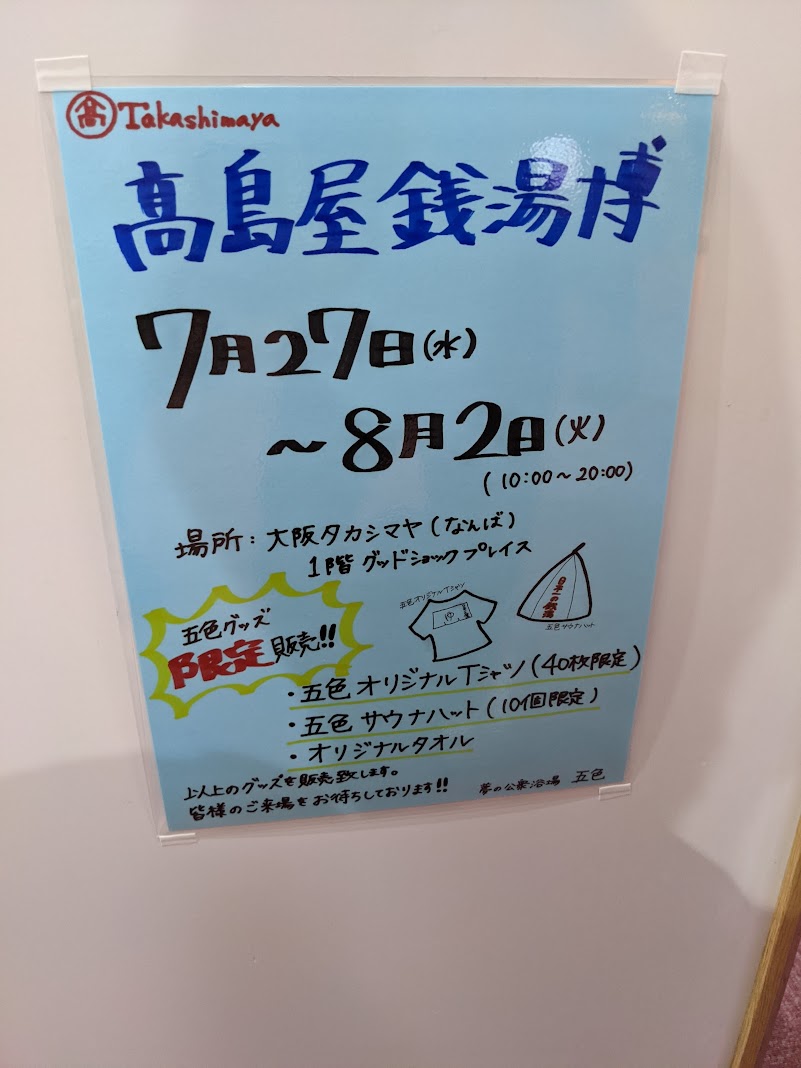 髙 Takashimaya
髙島屋銭湯博
7月27日(水)
~8月2日(火)
(10:00~20:00)
場所:大阪タカシマヤ(なんば)
1階 グッドショックプレイス
五色グッズ
限定販売!!
五色オリジナルTシャツ
ゆ
日本一の銭湯
五色サウナハット
・五色 オリジナルTシャツ(40枚限定)
・五色 サウナハット(10個限定)
・オリジナルタオル
以上のグッズを販売致します。
皆様のご来場をお待ちしております!!
夢の公衆浴場 五色